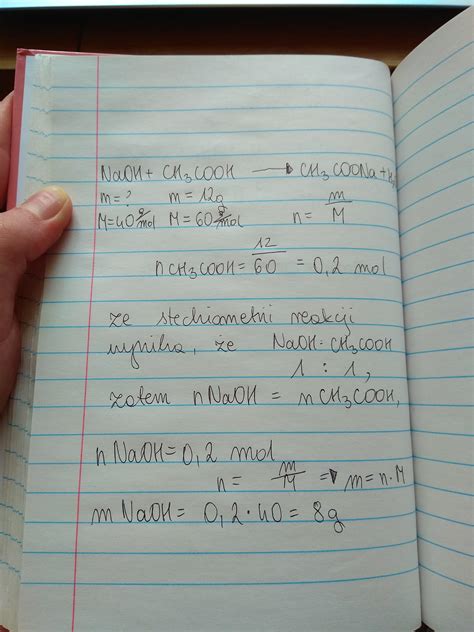 NaOH + CH₃COOH → CH₃COONa + H₂O
m = ? m = 12g n = m/M
M = 40 g/mol M = 60 g/mol
nCH₃COOH = 12/60 = 0,2 mol
ze stechiometrii reakcji
wynika, że NaOH : CH₃COOH
1 : 1,
zatem nNaOH = nCH₃COOH,
nNaOH = 0,2 mol
n = m/M ⇒ m = n·M
mNaOH = 0,2 · 40 = 8g